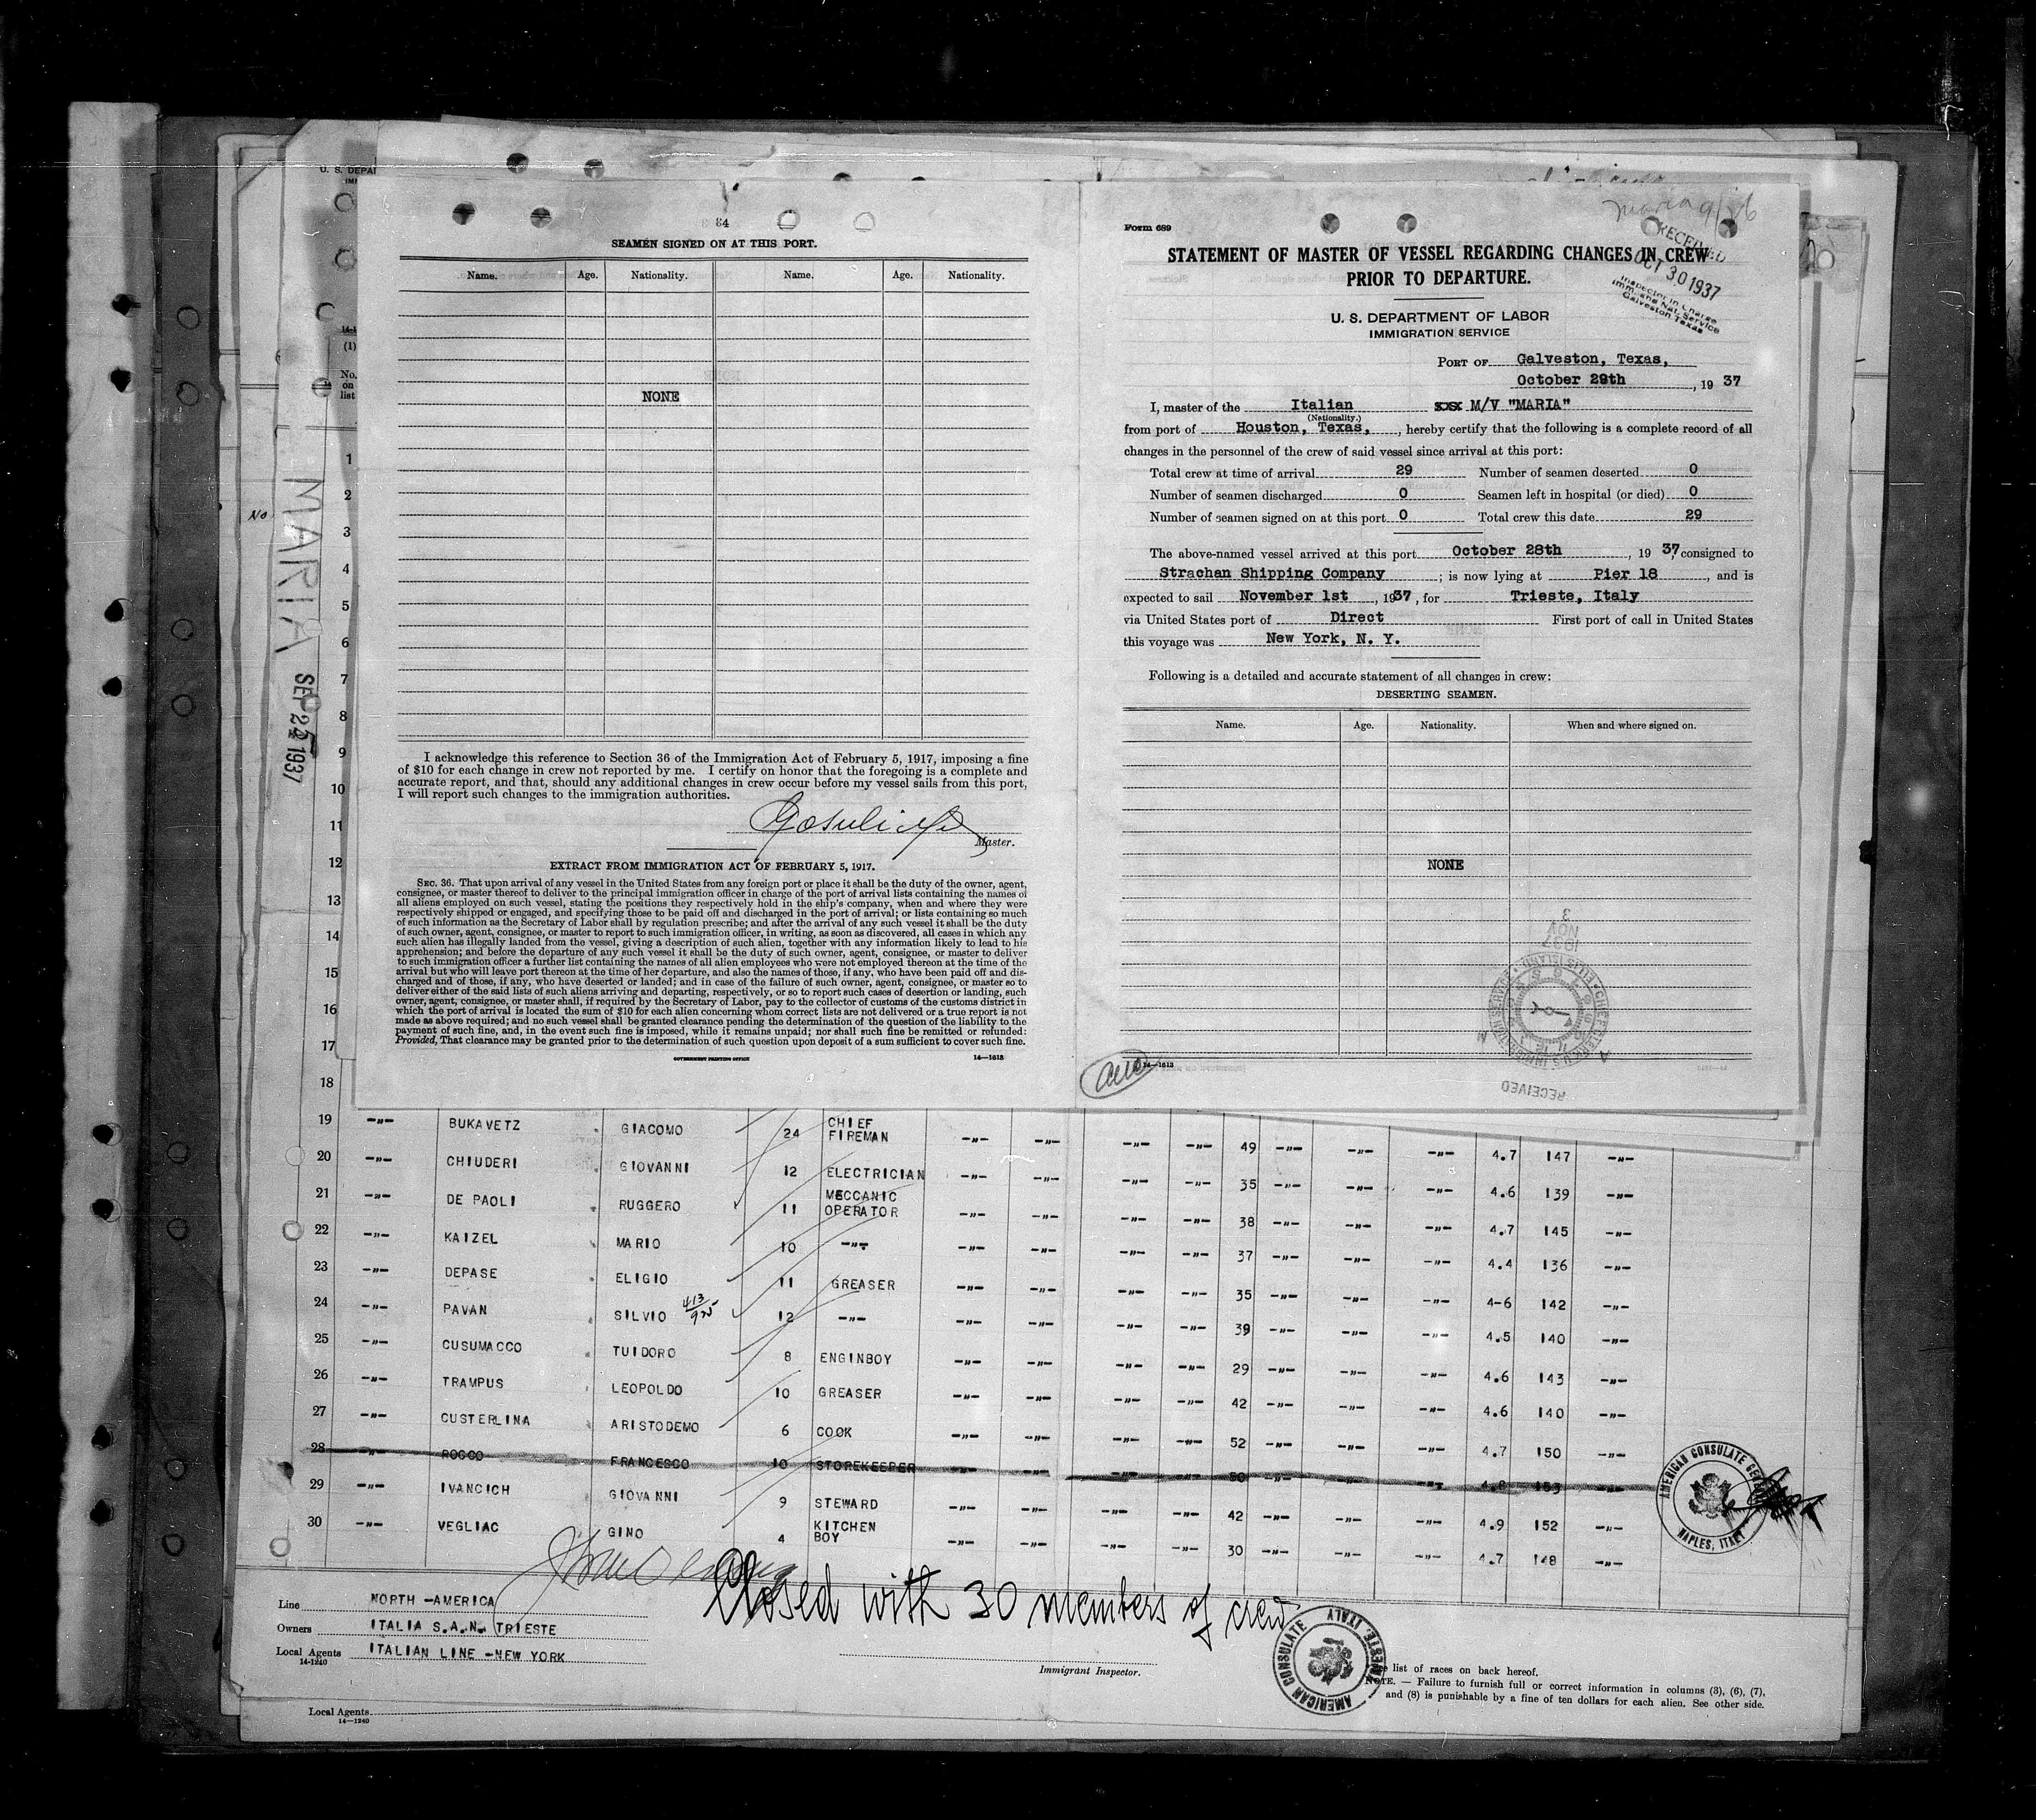 U. S. DEPAR
34
SEAMEN SIGNED ON AT THIS PORT.
Name. Age. Nationality. Name. Age. Nationality.
NONE
I acknowledge this reference to Section 36 of the Immigration Act of February 5, 1917, imposing a fine
of $10 for each change in crew not reported by me. I certify on honor that the foregoing is a complete and
accurate report, and that, should any additional changes in crew occur before my vessel sails from this port,
I will report such changes to the immigration authorities.
Master.
EXTRACT FROM IMMIGRATION ACT OF FEBRUARY 5, 1917.
SEC. 36. That upon arrival of any vessel in the United States from any foreign port or place it shall be the duty of the owner, agent,
consignee, or master thereof to deliver to the principal immigration officer in charge of the port of arrival lists containing the names of
all aliens employed on such vessel, stating the positions they respectively hold in the ship's company, when and where they were
respectively shipped or engaged, and specifying those to be paid off and discharged in the port of arrival; or lists containing so much
of such information as the Secretary of Labor shall by regulation prescribe; and after the arrival of any such vessel it shall be the duty
of such owner, agent, consignee, or master to report to such immigration officer, in writing, as soon as discovered, all cases in which any
such alien has illegally landed from the vessel, giving a description of such alien, together with any information likely to lead to his
apprehension; and before the departure of any such vessel it shall be the duty of such owner, agent, consignee, or master to deliver
to such immigration officer a further list containing the names of all alien employees who were not employed thereon at the time of the
arrival but who will leave port thereon at the time of her departure, and also the names of those, if any, who have been paid off and dis-
charged and of those, if any, who have deserted or landed; and in case of the failure of such owner, agent, consignee, or master so to
deliver either of the said lists of such aliens arriving and departing, respectively, or so to report such cases of desertion or landing, such
owner, agent, consignee, or master shall, if required by the Secretary of Labor, pay to the collector of customs of the customs district in
which the port of arrival is located the sum of $10 for each alien concerning whom correct lists are not delivered or a true report is not
made as above required; and no such vessel shall be granted clearance pending the determination of the question of the liability to the
payment of such fine, and, in the event such fine is imposed, while it remains unpaid; nor shall such fine be remitted or refunded:
Provided, That clearance may be granted prior to the determination of such question upon deposit of a sum sufficient to cover such fine.
GOVERNMENT PRINTING OFFICE 14—1613
Maria 9/26
Form 689
STATEMENT OF MASTER OF VESSEL REGARDING CHANGES IN CREW
PRIOR TO DEPARTURE.
RECEIVED
OCT 30 1937
Inspector in Charge
Imm. and Nat. Service
Galveston, Texas
U. S. DEPARTMENT OF LABOR
IMMIGRATION SERVICE
PORT OF Galveston, Texas,
October 29th, 19 37
I, master of the Italian xxx M/V "MARIA"
(Nationality.)
from port of Houston, Texas, , hereby certify that the following is a complete record of all
changes in the personnel of the crew of said vessel since arrival at this port:
Total crew at time of arrival 29 Number of seamen deserted 0
Number of seamen discharged 0 Seamen left in hospital (or died) 0
Number of seamen signed on at this port 0 Total crew this date 29
The above-named vessel arrived at this port October 28th, 19 37, consigned to
Strachan Shipping Company ; is now lying at Pier 18 , and is
expected to sail November 1st , 1937, for Trieste, Italy
via United States port of Direct First port of call in United States
this voyage was New York, N. Y.
Following is a detailed and accurate statement of all changes in crew:
DESERTING SEAMEN.
Name. Age. Nationality. When and where signed on.
NONE
1937
NOV
3
CHIEF CLERK U.S. IMMIGRATION SERVICE ELLIS ISLAND
RECEIVED
14—1613
No
MARIA
SEP 25 1937
(1)
No.
on
list
1
2
3
4
5
6
7
8
9
10
11
12
13
14
15
16
17
18
19 –"– BUKAVETZ GIACOMO 24 CHIEF FIREMAN –"– –"– –"– –"– 49 –"– –"– –"– 4.7 147 –"–
20 –"– CHIUDERI GIOVANNI 12 ELECTRICIAN –"– –"– –"– –"– 35 –"– –"– –"– 4.6 139 –"–
21 –"– DE PAOLI RUGGERO 11 MECCANIC OPERATOR –"– –"– –"– –"– 38 –"– –"– –"– 4.7 145 –"–
22 –"– KAIZEL MARIO 10 –"– –"– –"– –"– –"– 37 –"– –"– –"– 4.4 136 –"–
23 –"– DEPASE ELIGIO 11 GREASER –"– –"– –"– –"– 35 –"– –"– –"– 4-6 142 –"–
24 –"– PAVAN SILVIO 12 –"– –"– –"– –"– –"– 39 –"– –"– –"– 4.5 140 –"–
25 –"– CUSUMACCO TUIDORO 8 ENGINBOY –"– –"– –"– –"– 29 –"– –"– –"– 4.6 143 –"–
26 –"– TRAMPUS LEOPOLDO 10 GREASER –"– –"– –"– –"– 42 –"– –"– –"– 4.6 140 –"–
27 –"– CUSTERLINA ARISTODEMO 6 COOK –"– –"– –"– –"– 52 –"– –"– –"– 4.7 150 –"–
28 –"– ROCCO FRANCESCO 10 STOREKEEPER –"– –"– –"– –"– 50 –"– –"– –"– 4.8 153 –"–
29 –"– IVANCICH GIOVANNI 9 STEWARD –"– –"– –"– –"– 42 –"– –"– –"– 4.9 152 –"–
30 –"– VEGLIAC GINO 4 KITCHEN BOY –"– –"– –"– –"– 30 –"– –"– –"– 4.7 148 –"–
AMERICAN CONSULATE GENERAL
NAPLES, ITALY
Closed with 30 members of crew
Line NORTH –AMERICA
Owners ITALIA S.A.N. TRIESTE
Local Agents ITALIAN LINE –NEW YORK
14-1240
Immigrant Inspector.
AMERICAN CONSULATE
TRIESTE, ITALY
list of races on back hereof.
NOTE. — Failure to furnish full or correct information in columns (3), (6), (7),
and (8) is punishable by a fine of ten dollars for each alien. See other side.
Local Agents
14—1240